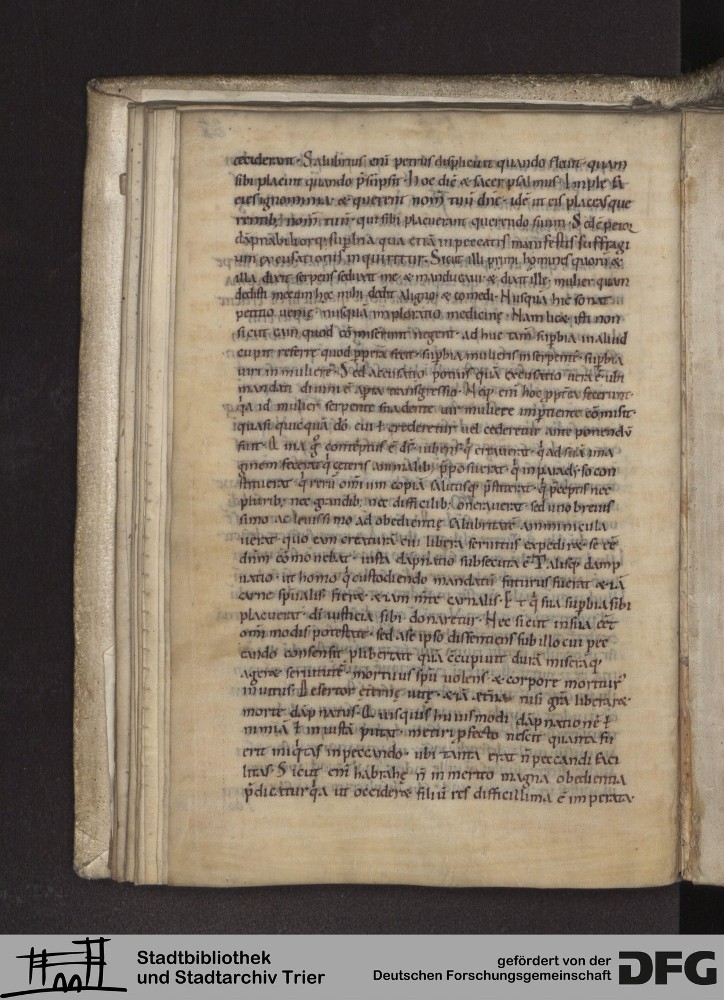 ceciderunt· Salubrius enī petrus displicuit quando fleuit· quam
sibi placuit quando p̄sūpsit· Hoc dic̄ & sacer psalmus· Imple fa
cies ignominia· & querent nom̄ tuū dn̄e· idē ut eis placeas que
rentib; nom̄ tuū· qui sibi placuerant querendo suum· Sed ē peior
dāpnabiliorq; supbia qua etiā in peccatis manifestis suffragi
um excusationis inquiritur· Sicut illi primi homines quorū &
illa dixit serpens seduxit me· & manducaui· & dixit ille· mulier quam
dedisti mecum hęc mihi dedit a ligno· & comedi· Nusquā hic sonat
petitio uenię· nusquā imploratio medicinę· Nam licet isti non
sicut cain quod cōmiserunt negent· adhuc tam̄ supbia in aliud
querit referre quod ppera fecit· supbia mulieris in serpentē· supbia
uiri in mulierē· Sed accusatio potius quā excusatio uera ē· ubi
mandati diuini ē apta transgressio· Neq; enī hoc ppt̄ea fecerunt·
q̄a id mulier serpente suadente· uir muliere inptiente cōmisit·
quasi quicquā dō cui ł crederetur uel cederetur anteponendū
fuit· Quia g̊ contēptus ē ds̄ iubens· q̇ creauerat· q̇ ad suā ima
ginem fecerat· q̇ ceteris animalib; p̄posuerat· q̇ in paradyso con
stituerat· q̇ rerū om̄ium copiā salutisq; p̄stiterat· q̇ p̄ceptis nec
plurib; nec grandib; nec difficilib; on̄erauerat· sed uno breuis
simo ac leuissimo ad obedientię salubritatē amminicula
uerat· quo eam creaturā cui libera seruitus expediret se eē
dn̄m cōmonebat· iusta dāpnatio subsecuta ē· Talisq; damp
natio· ut homo q̇ custodiendo mandatū futurus fuerat & iā
carne spiualis fieret & iam m̄te carnalis· & q̇ sua supbia sibi
placuerat· di iusticia sibi donaretur· Nec sic ut in sua eēt
om̄imodis potestate· sed a se ipso dissentiens sub illo cui pec
cando consensit p libertate quā cōcupiuit durā miserāq;
ageret seruitutē· mortuus spū uolens & corpore moriturꝰ
inuitus· Desertor eternę uitę· & iā ęt̄na nisi gr̄a liberaret
morte dāpnatus· Quisquis huiusmodi dāpnationē ł
nimiā ł iniustā putat· metiri pfecto nescit quanta fu
erit iniq̇tas in peccando· ubi tanta erat n̄ peccandi faci
litas· Sicut enī habrahę n̄ inmerito magna obedientia
p̄dicatur q̄a ut occideret filiū res difficillima ē imperata·
Stadtbibliothek
und Stadtarchiv Trier
gefördert von der
Deutschen Forschungsgemeinschaft
DFG